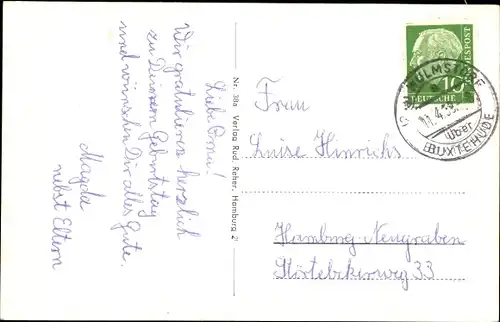 Liebe Oma!
Wir gratulieren herzlich
zu Deinem Geburtstag
und wünschen Dir alles Gute.
Magda
nebst Eltern
Nr. 38a Verlag Rud. Reher, Hamburg 2
Frau
Luise Hinrichs
Hamburg-Neugraben
Störtebekerweg 33
10
DEUTSCHE
BUNDESPOST
WULMSTORF
11.4.
über
BUXTEHUDE